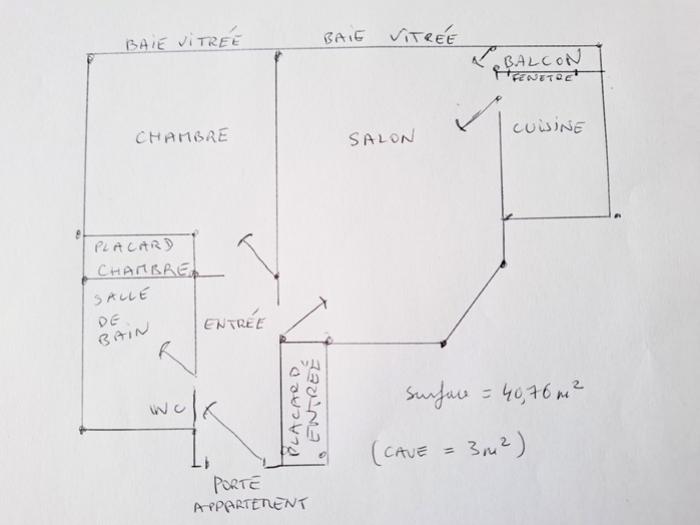 BAIE VITRÉE
BAIE VITRÉE
BALCON
FENETRE
CHAMBRE
SALON
CUISINE
PLACARD
CHAMBRE
SALLE
DE
BAIN
ENTRÉE
WC
PLACARD
ENTREÉ
Surface = 40,76 m²
(CAVE = 3m²)
PORTE
APPARTEMENT